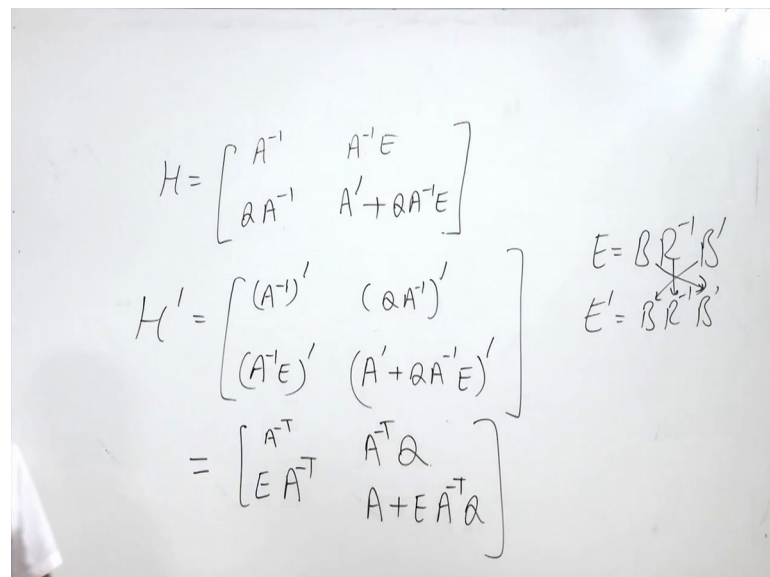 H = [ A⁻¹ A⁻¹E
QA⁻¹ A' + QA⁻¹E ]
H' = [ (A⁻¹)' (QA⁻¹)'
(A⁻¹E)' (A' + QA⁻¹E)' ]
= [ A⁻ᵀ A⁻ᵀQ
EA⁻ᵀ A + EA⁻ᵀQ ]
E = BR⁻¹B'
E' = BR⁻¹B'